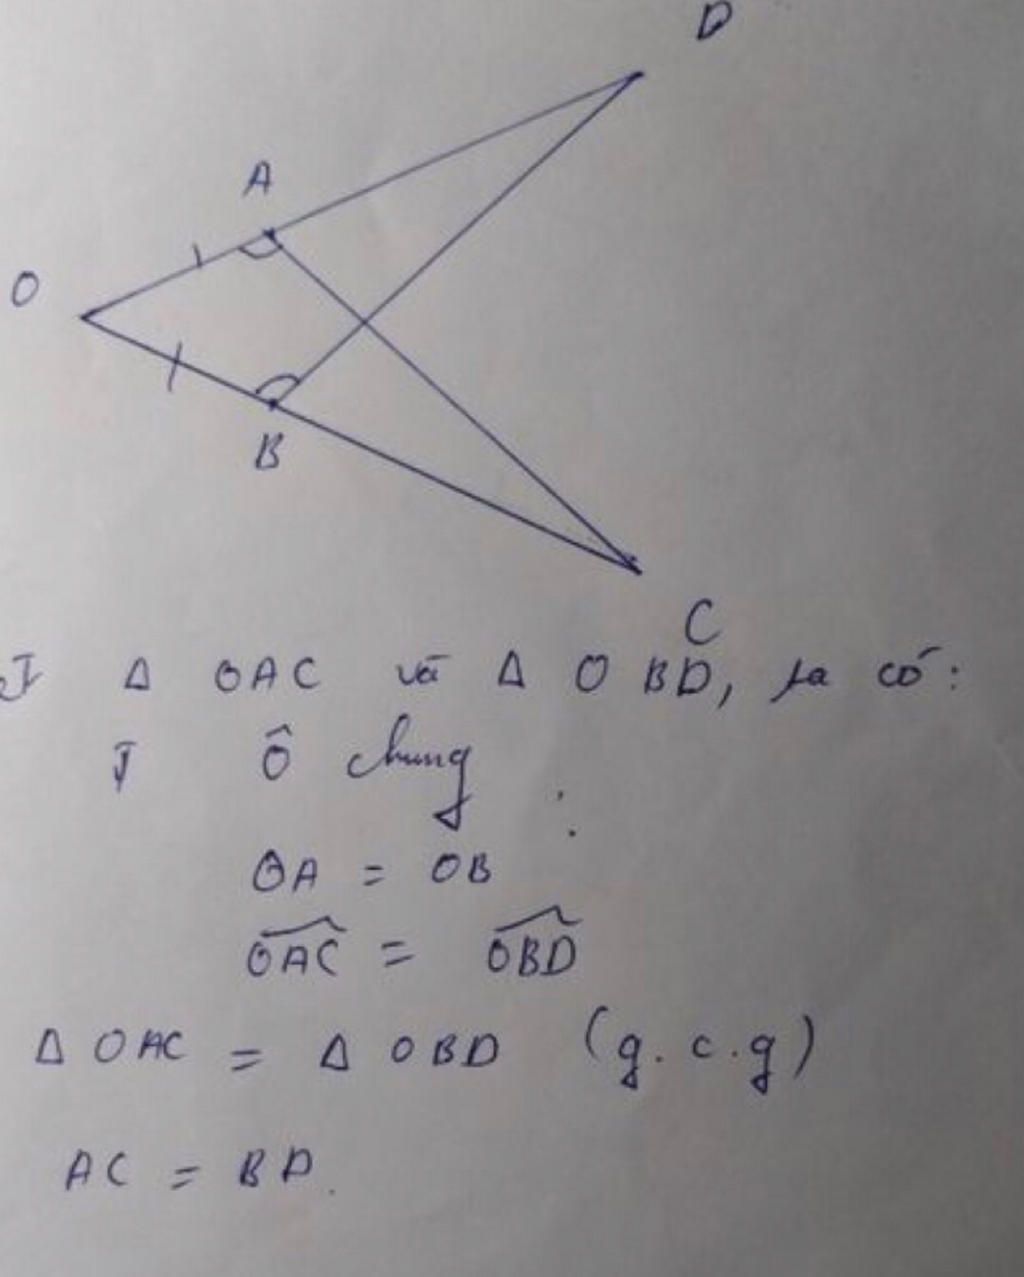 D
A
O
B
C
Δ OAC và Δ OBD, ta có:
Ô chung
OA = OB
\widehat{OAC} = \widehat{OBD}
Δ OAC = Δ OBD (g.c.g)
AC = BD.